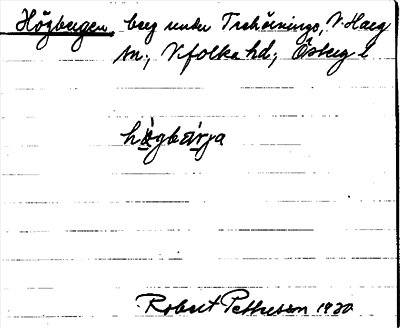 Högbergen, berg under Trehörnings, V. Harg
sn, Vifolka hd, Östergl
högbærga
Robert Pettersson 1930